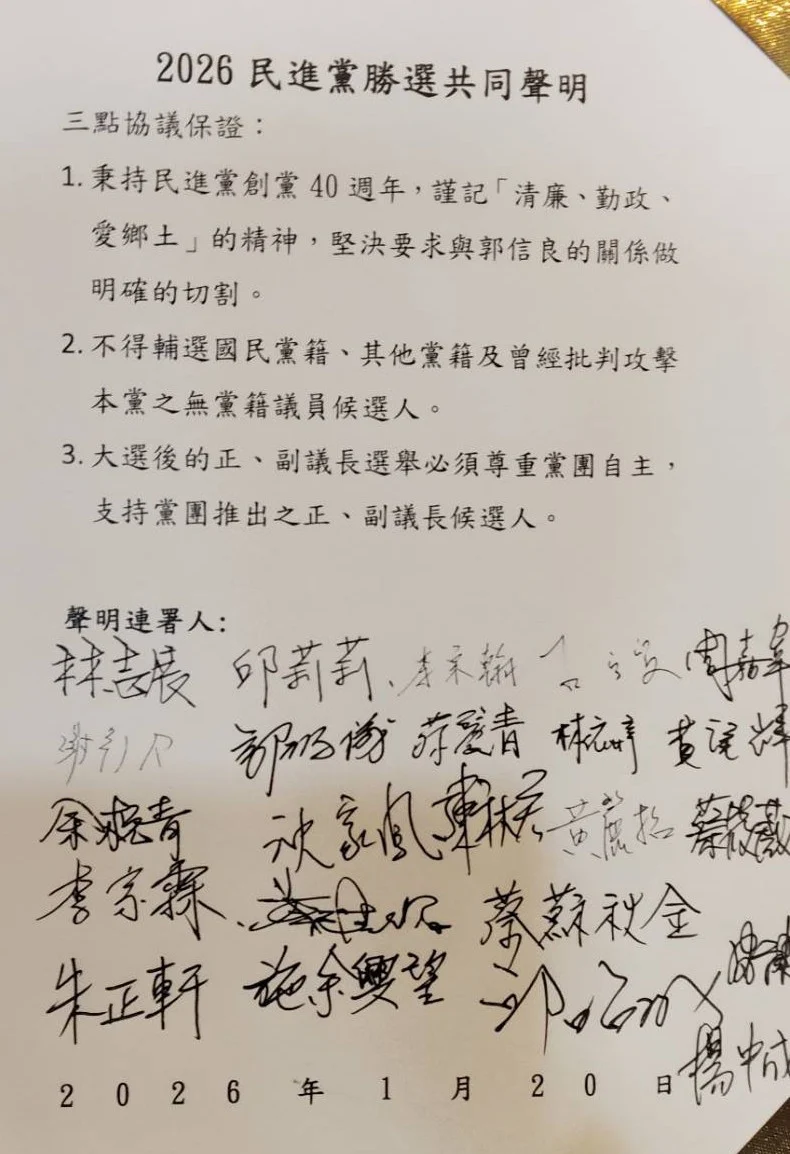 2026 民進黨勝選共同聲明
三點協議保證：
1. 秉持民進黨創黨 40 週年，謹記「清廉、勤政、
愛鄉土」的精神，堅決要求與郭信良的關係做
明確的切割。
2. 不得輔選國民黨籍、其他黨籍及曾經批判攻擊
本黨之無黨籍議員候選人。
3. 大選後的正、副議長選舉必須尊重黨團自主，
支持黨團推出之正、副議長候選人。
聲明連署人:
林志展 邱莉莉、李宗翰 周嘉韋
蔡筱薇
余柷青 陳秋宏 黃麗招
李宗霖 蔡蘇秋金
朱正軒 施余興望
楊中成
2026年1月20日